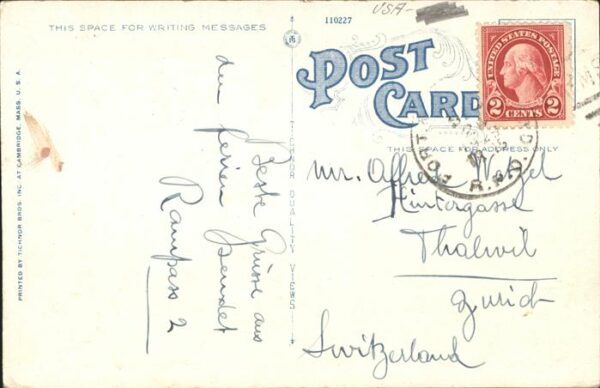 USA-
THIS SPACE FOR WRITING MESSAGES
110227
POST
CARD
UNITED STATES POSTAGE
2 CENTS 2
THIS SPACE FOR ADDRESS ONLY
PORT
R.P.O.
Beste Grüsse aus
den Ferien
sendet
Rampass 2
Mr. Alfred
Hintergasse
Thalwil
Zürich
Switzerland
TICHNOR QUALITY VIEWS
PRINTED BY TICHNOR BROS. INC. AT CAMBRIDGE, MASS. U. S. A.